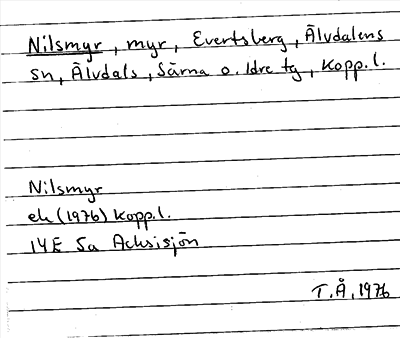 Nilsmyr, myr, Evertsberg, Älvdalens
sn, Älvdals, Särna o. Idre tg, Kopp.l.
Nilsmyr
ek (1976) Kopp.l.
14E 5a Acksisjön
T.Å, 1976